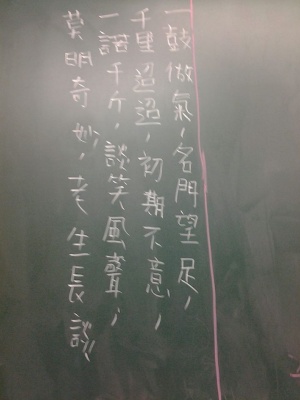 一鼓做氣，名門望足，
千里迢迢，初期不意，
一諾千斤，談笑風聲，
莫明奇妙，老生長談，